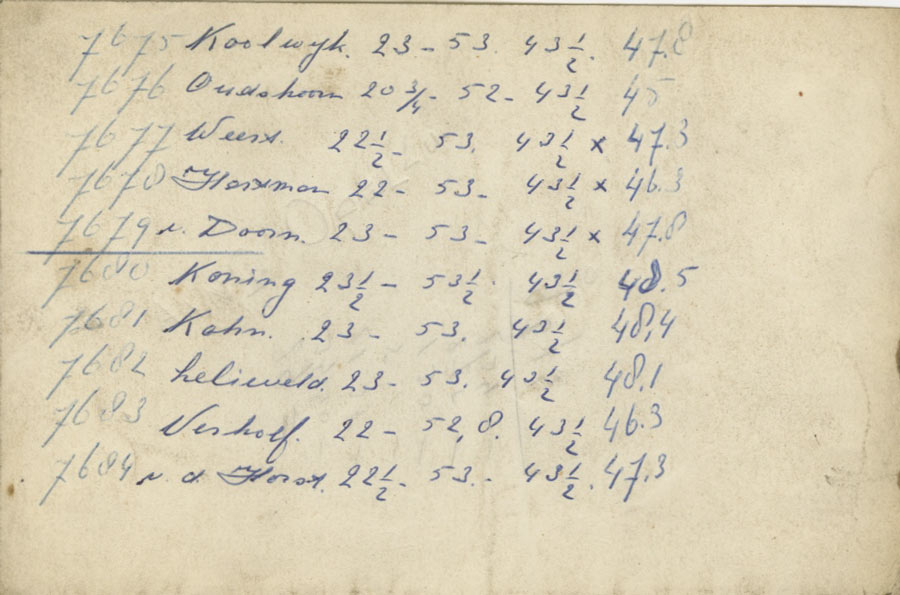 7675 Koolwyk. 23 - 53. 43½. 47.8
7676 Oudshoorn 20¾ - 52 - 43½ 45
7677 Weerst. 22½ - 53. 43½ x 47.3
7678 Horsman 22 - 53 - 43½ x 46.3
7679 v. Doorn. 23 - 53 - 43½ x 47.8
7680 Koning 23½ - 53½. 43½ 48.5
7681 Kahn. 23 - 53. 43½ 48,4
7682 23 - 53. 43½ 48.1
7683 Verhoef. 22 - 52,8. 43½ 46.3
7684 v. d Horst. 22½ - 53. - 43½. 47,3